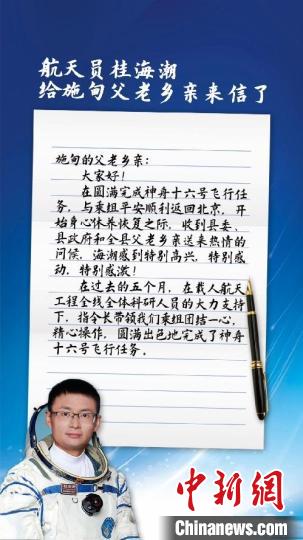 航天员桂海潮
给施甸父老乡亲来信了
施甸的父老乡亲：
大家好！
在圆满完成神舟十六号飞行任
务，与乘组平安顺利返回北京，开
始身心休养恢复之际，收到县委、
县政府和全县父老乡亲送来热情的
问候，海潮感到特别高兴，特别感
动，特别感激！
在过去的五个月，在载人航天
工程全线全体科研人员的大力支持
下，指令长带领我们乘组团结一心，
精心操作，圆满出色地完成了神舟
十六号飞行任务。
中新网
Chinanews.com